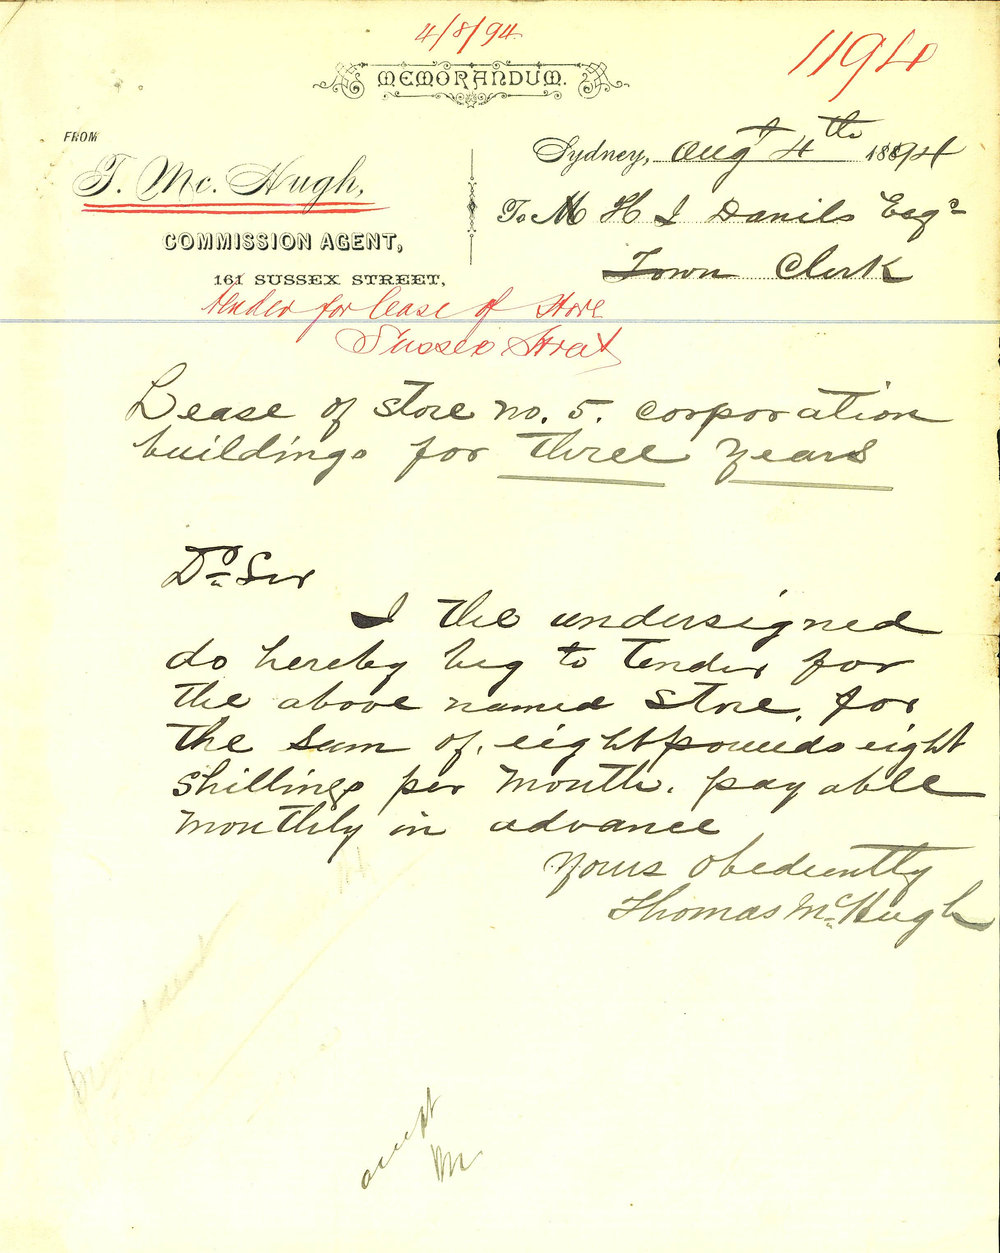 4/8/94
1194
MEMORANDUM.
FROM
T. Mc. Hugh,
COMMISSION AGENT,
161 SUSSEX STREET,
Sydney, Augt 4th 1894
To M H J Danils Esqre
Town Clerk
tender for lease of Store
Sussex Street
Lease of store no. 5. corporation
buildings for three years
Dr Sir
I the undersigned
do hereby beg to Tender for
the above named store. for
the sum of. eight pounds eight
shillings per month. payable
monthly in advance
Yours obediently
Thomas McHugh
accept